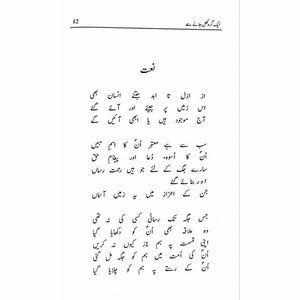 12
ایک گرہ کھل جانے سے
نعت
از ازل تا ابد جتنے انسان بھی
اس زمیں پر جیئے اور آئے گئے
آج موجود ہیں یا ابھی آئیں گے
سب سے ہے معتبر اُنؐ کا اسمِ مبیں
اُنؐ کا اُسوہ، دُعا اور پیغامِ حق
سارے جگ کے لئے جو ہیں رحمت رساں
اور بنائے گئے
جن کے اعزاز میں یہ زمیں آسماں
جس جگہ تک رسائی کسی کی نہ تھی
وہ علاقہ بھی اُنؐ کو دکھایا گیا
اپنی قسمت پہ ہم ناز کیوں نہ کریں
اُنؐ کی اُمت میں ہم کو جگہ مل گئی
اُنؐ کے رستے پہ ہم کو چلایا گیا